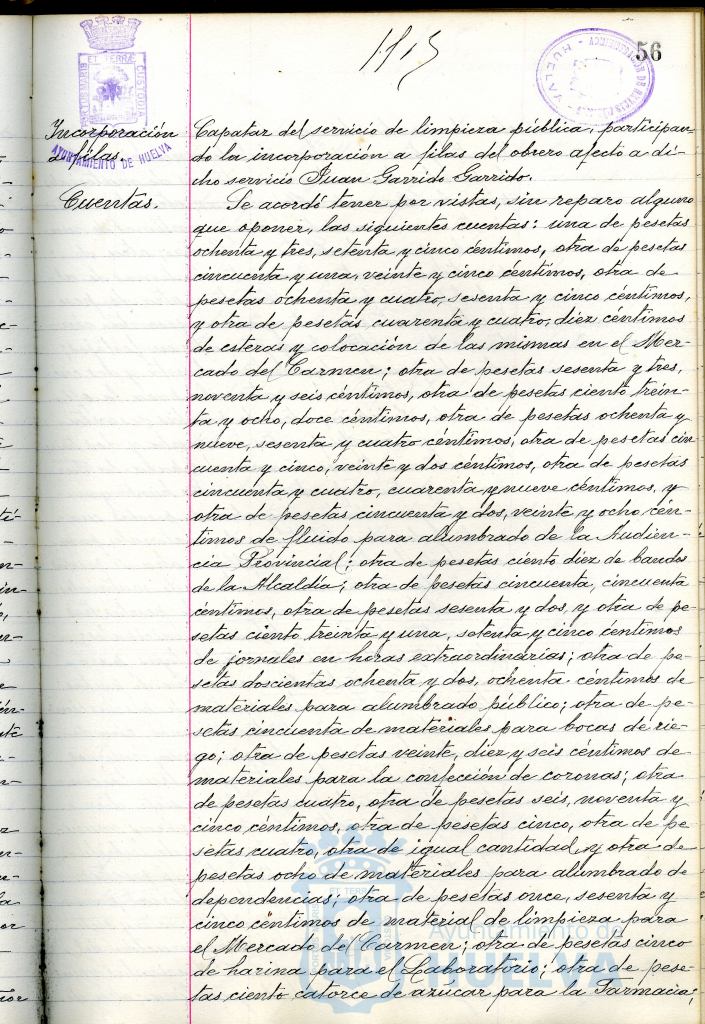 56
ET TERRÆ
HUELVA
AYUNTAMIENTO DE HUELVA
Incorporación
a filas.
Capataz del servicio de limpieza pública, participan-
do la incorporación a filas del obrero afecto a di-
cho servicio Juan Garrido Garrido.
Cuentas.
Se acordó tener por vistas, sin reparo alguno
que oponer, las siguientes cuentas: una de pesetas
ochenta y tres, setenta y cinco céntimos, otra de pesetas
cincuenta y una, veinte y cinco céntimos, otra de
pesetas ochenta y cuatro, sesenta y cinco céntimos,
y otra de pesetas cuarenta y cuatro, diez céntimos
de esteras y colocación de las mismas en el Mer-
cado del Carmen; otra de pesetas sesenta y tres,
noventa y seis céntimos, otra de pesetas ciento trein-
ta y ocho, doce céntimos, otra de pesetas ochenta y
nueve, sesenta y cuatro céntimos, otra de pesetas cin
cuenta y cinco, veinte y dos céntimos, otra de pesetas
cincuenta y cuatro, cuarenta y nueve céntimos, y
otra de pesetas cincuenta y dos, veinte y ocho cén-
timos de fluido para alumbrado de la Audien-
cia Provincial; otra de pesetas ciento diez de bandos
de la Alcaldía; otra de pesetas cincuenta, cincuenta
céntimos, otra de pesetas sesenta y dos, y otra de pe-
setas ciento treinta y una, setenta y cinco céntimos
de jornales en horas extraordinarias; otra de pe-
setas doscientas ochenta y dos, ochenta céntimos de
materiales para alumbrado público; otra de pe-
setas cincuenta de materiales para bocas de rie-
go; otra de pesetas veinte, diez y seis céntimos de
materiales para la confección de coronas; otra
de pesetas cuatro, otra de pesetas seis, noventa y
cinco céntimos, otra de pesetas cinco, otra de pe-
setas cuatro, otra de igual cantidad, y otra de
pesetas ocho de materiales para alumbrado de
dependencias; otra de pesetas once, sesenta y
cinco céntimos de material de limpieza para
el Mercado del Carmen; otra de pesetas cinco
de harina para el Laboratorio; otra de pese-
tas ciento catorce de azúcar para la Farmacia;
Ayuntamiento de
HUELVA